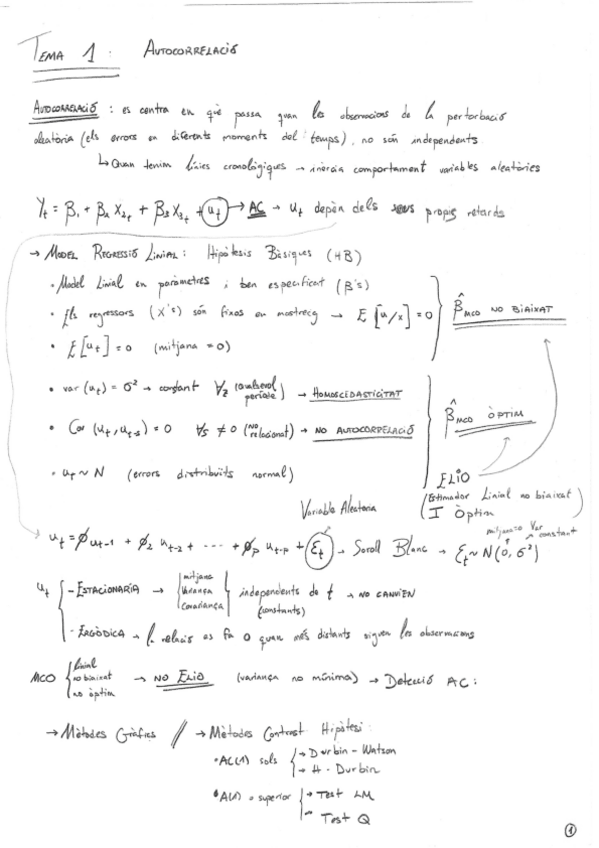 TEMA 1 : AUTOCORRELACIÓ
AUTOCORRELACIÓ : es centra en què passa quan les observacions de la pertorbació
aleatòria (els errors en diferents moments del temps), no són independents
↳ Quan tenim sèries cronològiques → inèrcia comportament variables aleatòries
Yt = β1 + β2 X2t + β3 X3t + ut → AC → ut depèn dels seus propis retards
→ MODEL REGRESSIÓ LINIAL : Hipòtesis Bàsiques (HB)
• Model Linial en paràmetres i ben especificat (β's)
• Els regressors (X's) són fixos en mostreig → E [u/x] = 0
• E[ut] = 0 (mitjana = 0)
β̂ MCO NO BIAIXAT
• var (ut) = σ² → constant ∀t (qualsevol període) → HOMOSCEDASTICITAT
• Cov (ut, ut-s) = 0 ∀s ≠ 0 (NO relacionat) → NO AUTOCORRELACIÓ
• ut ~ N (errors distribuïts normal)
β̂ MCO ÒPTIM
ELIO
(Estimador Linial no biaixat
I Òptim)
Variable Aleatoria
ut = ∅ ut-1 + ∅2 ut-2 + ---- + ∅p ut-p + Ɛt → Soroll Blanc → Ɛt ~ N(0, σ²)
mitjana=0 Var constant
ut
- ESTACIONARIA → mitjana Variança Covariança independents de t → NO CANVIEN
(constants)
- ERGÒDICA → la relació es fa 0 quan més distants siguen les observacions
MCO linial no biaixat no òptim → NO ELIO (variança no mínima) → Detecció AC :
→ Mètodes Gràfics // → Mètodes Contrast Hipòtesi :
• AC(1) sols → Durbin - Watson
→ H - Durbin
• A(1) o superior → Test LM
→ Test Q
1